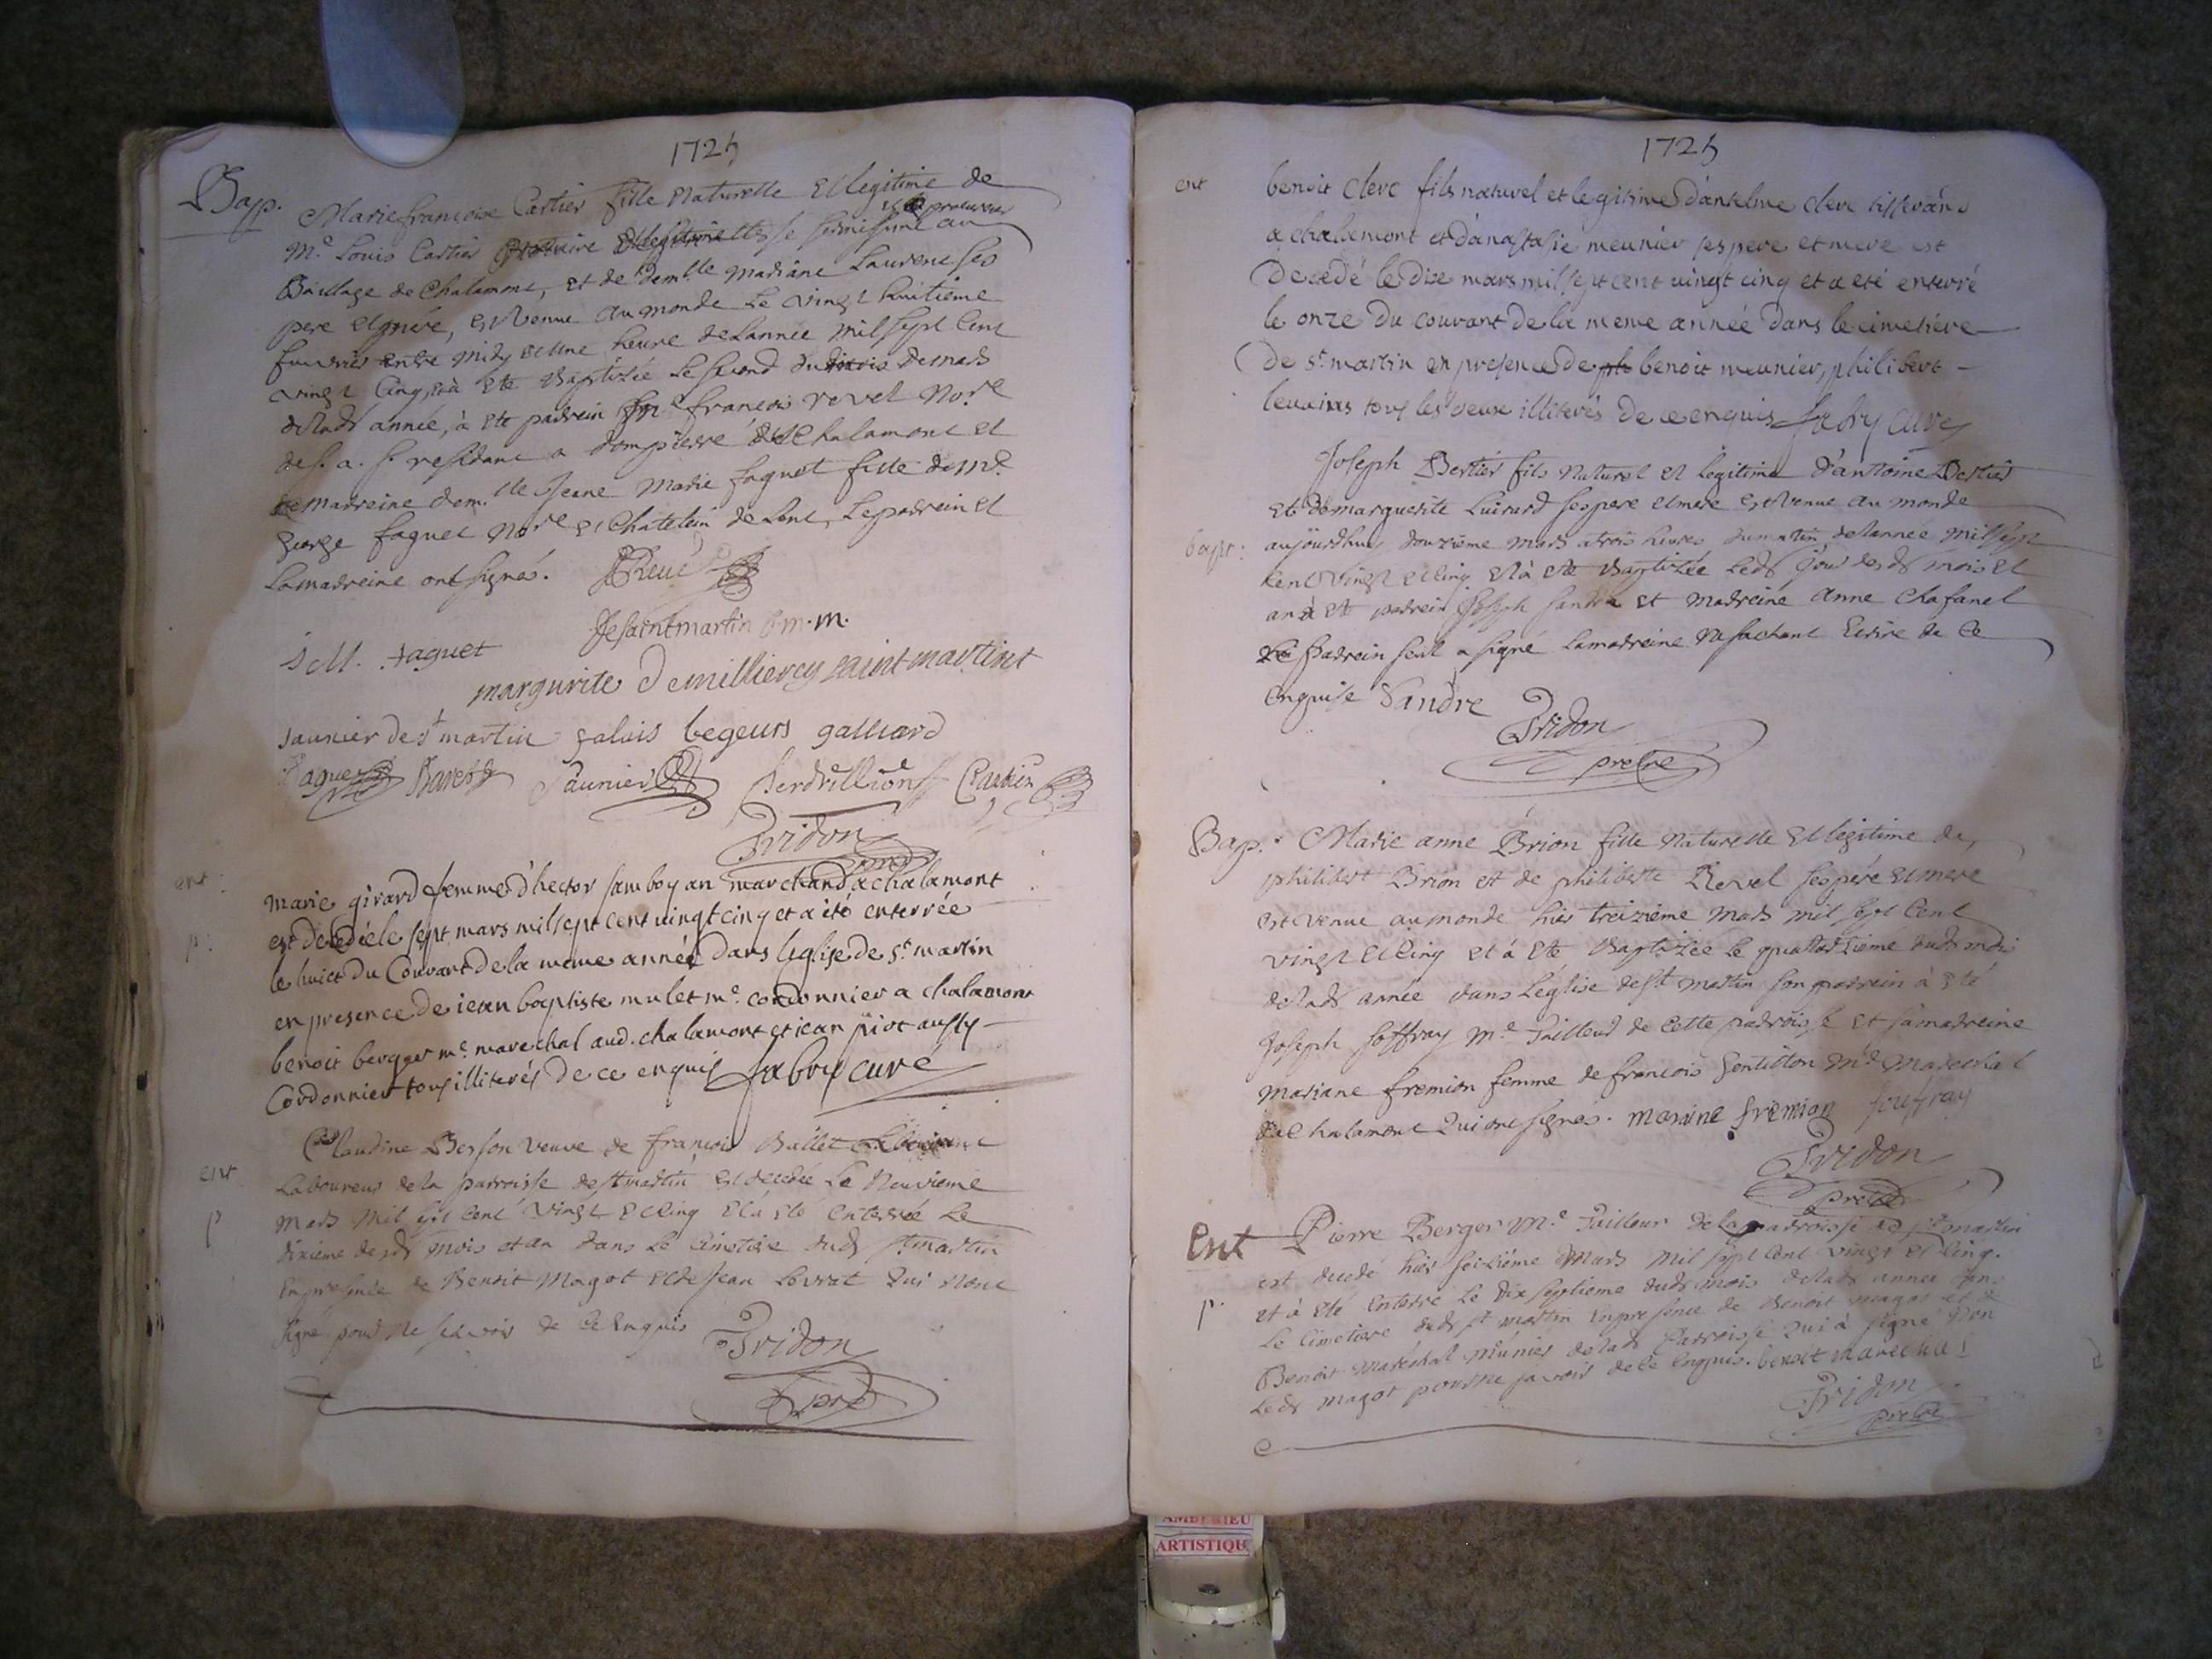 1725
Bap. Marie françoise Cartier fille Naturelle Et legitime de
procureur
Me. Louis Cartier au
Bailliage de Chalamont, et de demlle mariane Laurent ses
pere et mére, est Venue au monde le vingt huitieme
fevrier entre midy et une heure de lannée mil sept Cent
vingt Cinq, et à été Baptizée le second du mois de mars
de lad. année, à été padrein françois revel Nore
de s. a. s. residant a dompierre de Chalamont et
madreine demlle Jeane Marie faguet fille de Me.
George faguet Nore et Chatelain de Lent, Le padrein et
La madreine ont signés. Revel
Jesaintmartin
J M. faguet
margurite Demillierey saint martint
saunier de st martin galois begeurs galliard
faguet Saunier Perdrillion Cartier
Tridon
ent: marie girard femme d'hector samboyan marchand a chalamont
est decedéele sept mars mil sept cent vingt cinq et a été enterrée
p: le huict du Courant de la meme année dans leglise de st. martin
en presence de iean baptiste mulet me. cordonnier a chalamont
benoit berger me. marechal aud. chalamont et iean piot aussy
Cordonnier tous illiterés de ce enquis fabry curé
Claudine Berson veuve de francois Ballet
ent Laboureur de la parroisse de st martin est decedée Le Neuvieme
p mars mil sept cent vingt et cinq et à été enterrée Le
dixieme desd. mois et an dans Le Cimetiere dud. st. martin
En presence de Benoit Magot et de Jean Lovrat Qui n'ont
signé pour Ne scavoir de Ce Enquis Tridon
pre
1725
ent benoit clerc fils naturel et legitime d'antelme clerc tisserand
a chalamont et d'anastasie meunier ses pere et mere est
decedé le dix mars mil sept cent vingt cinq et a eté enterré
le onze du courant de la meme année dans le cimetiére
de st. martin en presence de benoit meunier, philibert
tous les deux illiterés de ce enquis fabry curé
Joseph Bertier fils Naturel et legitime d'antoine Bertier
et de marguerite Luirard ses pere et mere est Venue au monde
bapt: aujourdhuy douzième mars a trois heures du matin de lannée mil sept
Cent Vingt et Cinq et à été Baptizée Led. jour desd. mois et
an à été padrein Joseph sandre et madreine anne Chafanel
Le Padrein seul a signé La madreine Ne sachant Ecrire de Ce
enquise Sandre
Tridon
pretre
Bap. Marie anne Brion fille Naturelle Et legitime de
philibert Brion et de philiberte Revel ses pére et mere
est venue au monde hier treizième mars mil sept Cent
vingt et Cinq et à été Baptizée le quattorzième dud. mois
de lad. année dans L'église de st martin son padrein à été
Joseph Joffray Me. Tailleur de Cette parroisse et sa madreine
mariane fremion femme de francois Gentillon Me. Marechal
de Chalamont Qui ont signés. mariane fremion Jouffray
Tridon
pretre
Ent Pierre Berger Me. Tailleur de la parroisse de st. martin
est decedé hier seizième Mars mil sept Cent vingt et Cinq.
p. et à été Enterré Le dix septieme dud. mois de lad. année dans
Le Cimetiere dud. st martin En presence de Benoit magot et de
Benoit Maréchal munier de lad. Parroisse Qui à signé Non
Led. magot pour Ne savoir de Ce Enquis. benoit marechal
Tridon
pretre
AMBERIEU
ARTISTIQU